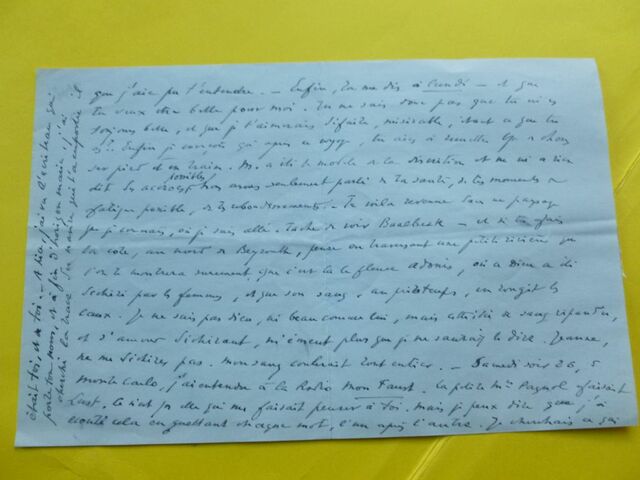 que j'aie pu t'entendre. — Enfin, tu me dis à Lundi — et que
tu veux être belle pour moi. Tu ne sais donc pas que tu m'es
toujours belle, et que je t'aimerais défaite, misérable, tout ce que tu
es?! Enfin je conçois qu'après ce voyage, tu aies à remettre
sur pied et en train. M. a été le modèle de la discrétion et ne m'a rien
dit. Nous avons seulement parlé de ta santé, de tes moments de
fatigue possible, possibles, de tes rebondissements. Te voilà revenue dans ce paysage
que je connais, où je suis allé. Tâche de voir Baalbeck — et si tu fais
la côte, au nord de Beyrouth, pense en traversant une petite rivière que
l'on te montrera sûrement, que c'est là le fleuve Adonis, où ce Dieu a été
déchiré par les femmes, et que son sang, au printemps, en rougit les
eaux. Je ne suis pas dieu, ni beau comme lui, mais cette idée de sang répandu,
et d'amour déchirant, m'émeut plus que je ne saurais le dire. Jeanne,
ne me déchirez pas. Mon sang coulerait tout entier. — Samedi soir 26, à
Monte Carlo, j'ai entendu à la Radio Mon Faust. La petite Mme Pagnol faisait
Lust. Ce n'est pas elle qui me faisait penser à toi, mais je peux dire que j'ai
écouté cela en guettant chaque mot, l'un après l'autre. Je cherchais ce qui
était toi, et de toi. — A Nice j'ai vu l'écriteau qui
porte ton nom, et à fin d'horizon marin : j'ai
cherché la trace du navire qui t'a emportée il